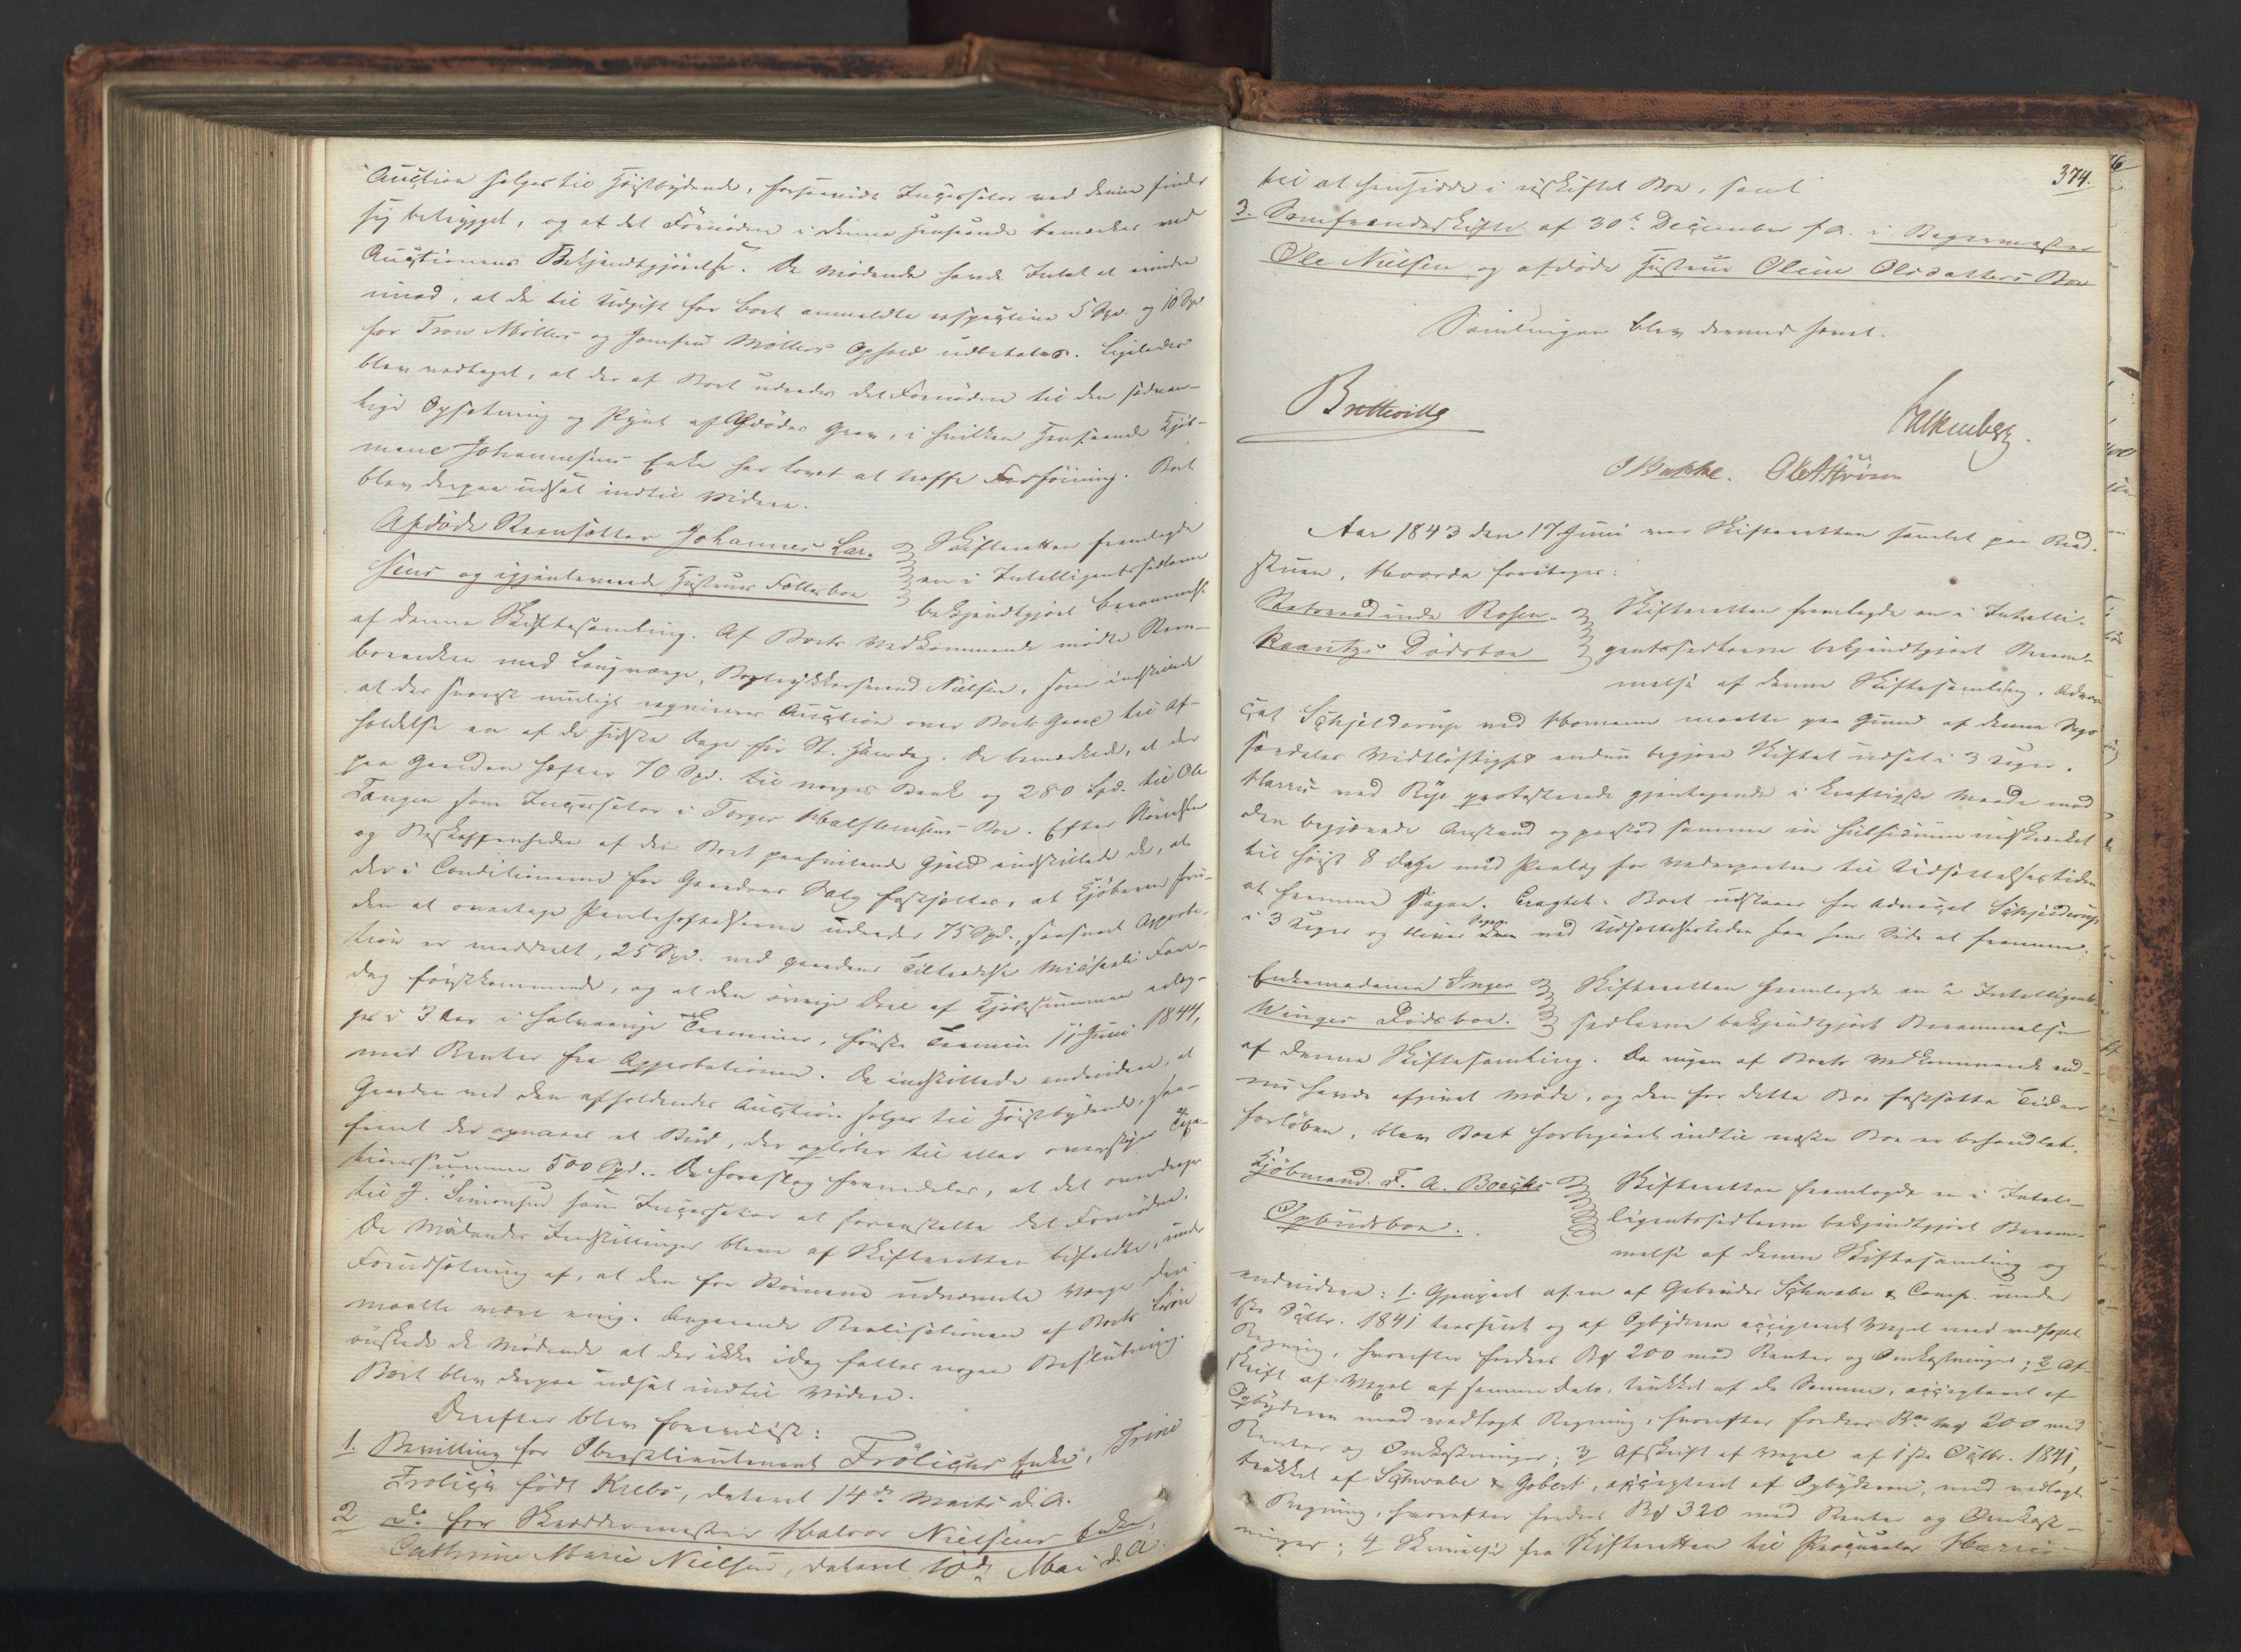 Auction sælges til Høistbydende, forsaavidt Incassator ved denne finder
sig betrygget, og at det Fornødne i denne Henseende bemærkes ved
Auctionens Bekjendtgjørelse. De Mødende havde Intet at erindre
imod, at de til Udgift for Boet anmeldte respective 5 Spd. og 10 Spd
for Tron Møllers og Jomfru Møllers Ophold udbetales. Ligeledes
blev vedtaget, at der af Boet udredes det Fornødne til den sædvan-
lige Opsætning og Pynt af Afdødes Grav, i hvilken Henseende Kjøb-
mand Johannesens Enke har lovet at træffe Forføining. Boet
blev derpaa udsat indtil Videre.
Afdøde Steensætter Johannes Lar-
sens og igjenlevende Hustrues Fællesboe
Skifteretten fremlagde
en i Intelligentssedlerne
bekjendtgjort Berammelse
af denne Skiftesamling. Af Boets Vedkommende mødte Steer-
boenken med Laugværge, Bogtrykkersvend Nielsen, som indstillede
at der snarest muligt reqvireres Auction over Boets Gaard til Af-
holdelse en af de sidste Dage før St. Hansdag. De bemærkede, at der
paa Gaarden hefter 70 Spd. til Norges Bank og 280 Spd. til Ole
Tangen som Incassator i Torger Halstensens Boe. Efter Størrelsen
og Beskaffenheden af den Boet paahvilende Gjæld indstillede de, at
der i Conditionerne for Gaardens Salg fastsættes, at Kjøberen foru-
den at overtage Pantehæftelserne udreder 75 Spd., saasnart Approba-
tion er meddeelt, 25 Spd. ved Gaardens Tiltrædelse Michaeli Fare-
dag førstkommende, og at den øvrige Deel af Kjøbesummen erlæg-
ges i 3 Aar i halvaarige Terminer, første Termin 11 Juni 1844,
med Renter fra Approbationen. De indstillede endvidere, at
Gaarden ved den afholdendes Auction sælges til Høistbydende, saa-
fremt der opnaaes et Bud, der opløber til eller overstiger Taxa-
tionssummen 500 Spd. De foreslog fremdeles, at det overdrages
til J. Simonsen som Incassator at foranstalte det Fornødne.
De Mødendes Indstillinger bleve af Skifteretten bifaldte, under
Forudsætning af, at den for Børnene udnævnte Værge deri
maatte være enig. Angaaende Realisationen af Boets Løsøre
ønskede de Mødende at der ikke idag fattes nogen Beslutning.
Boet blev derpaa udsat indtil Videre.
Derefter blev foreviist:
1. Bevilling for Oberstlieutenant Frölichs Enke, Trine
Frölich født Krebs, dateret 14de Marts d. A.
2 Do for Skræddermester Halvor Nielsens Enke,
Cathrine Marie Nielsen, dateret 10de Mai d. A.
374.
til at hensidde i uskiftet Boe, samt
3. Samfrændeskifte af 30te December f. A. i Bagermester
Ole Nielsen og afdøde Hustrue Oline Olsdatters Boe
Samlingen blev dermed hævet.
Bretteville
Falkenberg.
O Bakke. Ole A Strøm
Aar 1843 den 17 Juni var Skifteretten samlet paa Raad-
stuen. Hvorda foretoges:
Statsraadinde Rosen-
kraantz's Dødsboe
Skifteretten fremlagde en i Intelli-
gentssedlerne bekjendtgjort Beram-
melse af denne Skiftesamling. Advo-
cat Schjelderup ved Homann maatte paa Grund af denne Sags
særdeles Vidtløftighed endnu begjære Skiftet udsat i 3 Uger.
Harris ved Rye protesterede gjentagende i kraftigste Maade mod
den begjærede Anstand og paastod samme in subsidium indskrænket
til høist 8 Dage med Paalæg for Modparten til Udsættelsestiden
at fremme Sagen. Eragtet: Boet udstaaer for Advocat Schjelderup
i 3 Uger og bliver Sagen ved Udsættelsestiden fra hans Side at fremme.
Enkemadame Inger
Winges Dødsboe.
Skifteretten fremlagde en i Intelligents-
sedlerne bekjendtgjort Berammelse
af denne Skiftesamling. Da ingen af Boets Vedkommende end-
nu havde afgivet Møde, og den for dette Boe fastsatte Tid er
forløben, blev Boet forbigaaet indtil næste Boe er behandlet.
Kjøbmand F. A. Boecks
Opbudsboe.
Skifteretten fremlagde en i Intel-
ligentssedlerne bekjendtgjort Beram-
melse af denne Skiftesamling og
endvidere: 1. Gjenpart af en af Gebrüder Schwabe & Comp. under
1ste Octbr. 1841 trasseret og af Opbyderen accepteret Vexel med vedhæftet
Regning, hvorefter fordres B 200 med Renter og Omkostninger; 2 Af-
skrift af Vexel af samme Dato, trukket af de Samme, accepteret af
Opbyderen med vedlagt Regning, hvorefter fordres 200 med
Renter og Omkostninger; 3 Afskrift af Vexel af 1ste Octbr. 1841,
trukket af Schwabe & Gobert, accepteret af Opbyderen, med vedlagt
Regning, hvorefter fordres 320 med Renter og Omkost-
ninger; 4 Skrivelse fra Skifteretten til Procurator Harris